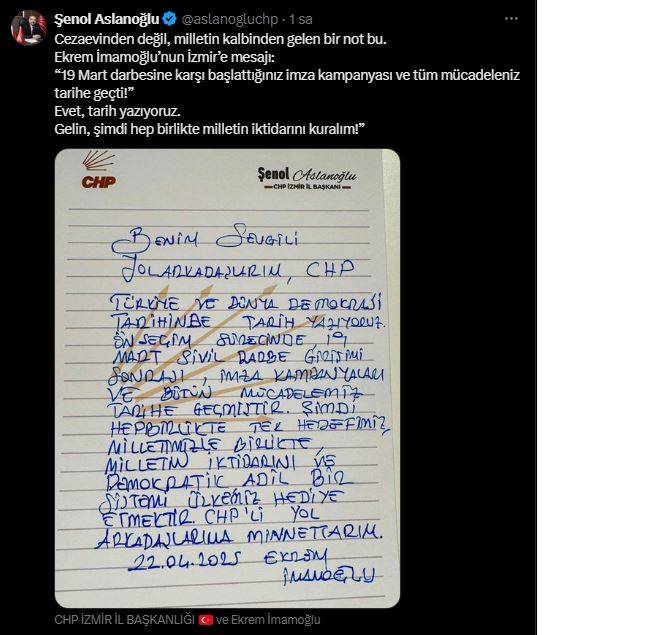 Şenol Aslanoğlu @aslanogluchp · 1 sa
Cezaevinden değil, milletin kalbinden gelen bir not bu.
Ekrem İmamoğlu’nun İzmir’e mesajı:
“19 Mart darbesine karşı başlattığınız imza kampanyası ve tüm mücadeleniz
tarihe geçti!”
Evet, tarih yazıyoruz.
Gelin, şimdi hep birlikte milletin iktidarını kuralım!”
CHP
Şenol Aslanoğlu
CHP İZMİR İL BAŞKANI
BENİM SEVGİLİ
YOLARKADAŞLARIM, CHP
TÜRKİYE VE DÜNYA DEMOKRASİ
TARİHİNDE TARİH YAZIYORUZ.
ÖNSEÇİM SÜRECİNDE, 19
MART SİVİL DARBE GİRİŞİMİ
SONRASI, İMZA KAMPANYALARI
VE BÜTÜN MÜCADELEMİZ
TARİHE GEÇMİŞTİR. ŞİMDİ
HEPBİRLİKTE TEK HEDEFİMİZ,
MİLLETİMİZLE BİRLİKTE,
MİLLETİN İKTİDARINI VE
DEMOKRATİK ADİL BİR
SİSTEMİ ÜLKEMİZ HEDİYE
ETMEKTİR. CHP'Lİ YOL
ARKADAŞLARIMA MİNNETTARIM.
22.04.2025 EKREM
İMAMOĞLU
CHP İZMİR İL BAŞKANLIĞI 🇹🇷 ve Ekrem İmamoğlu